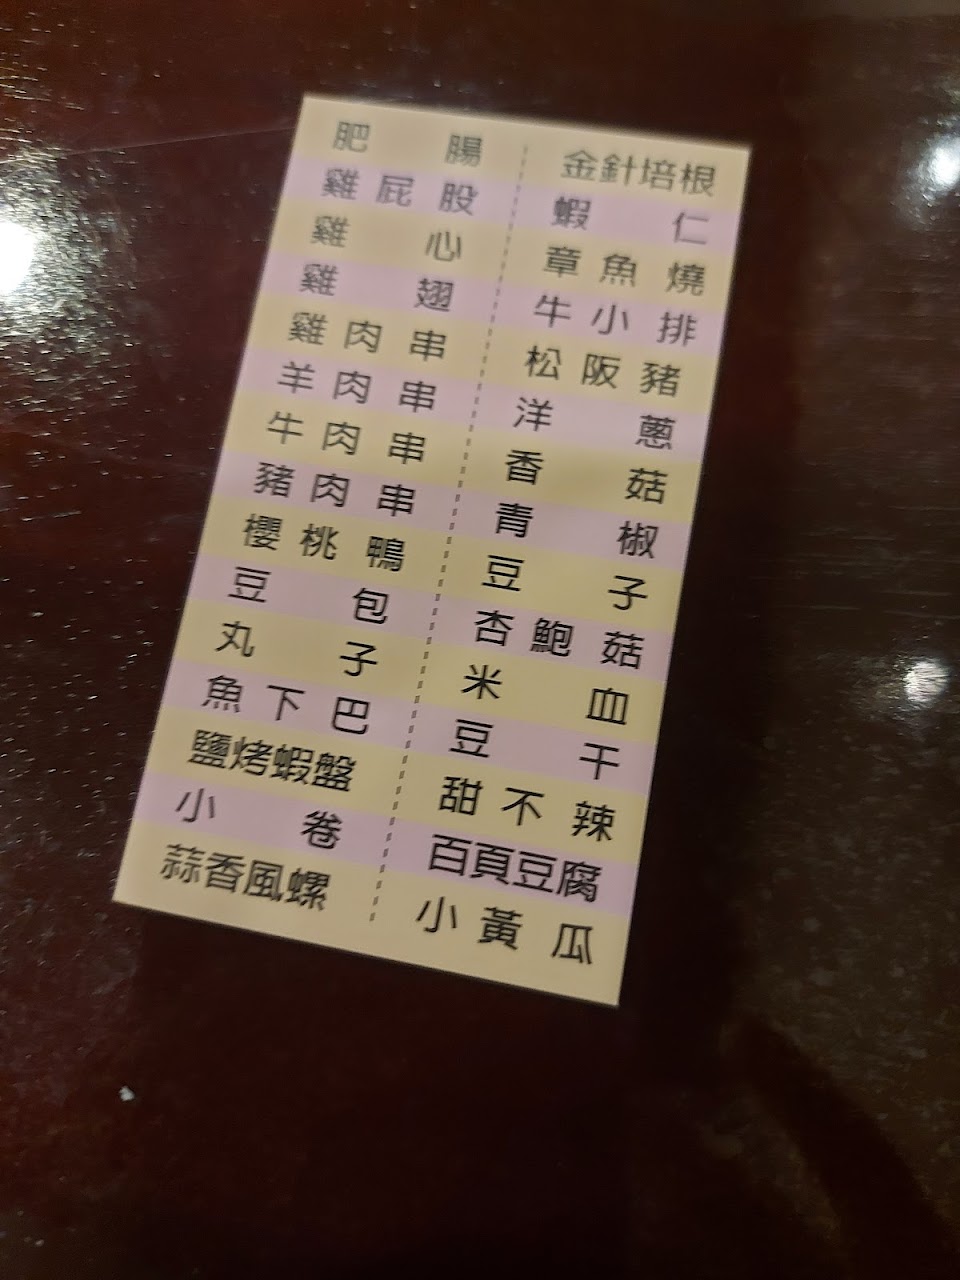 肥腸
雞屁股
雞心
雞翅
雞肉串
羊肉串
牛肉串
豬肉串
櫻桃鴨
豆包
丸子
魚下巴
鹽烤蝦盤
小卷
蒜香風螺
金針培根
蝦仁
章魚燒
牛小排
松阪豬
洋蔥
香菇
青椒
豆子
杏鮑菇
米血
豆干
甜不辣
百頁豆腐
小黃瓜